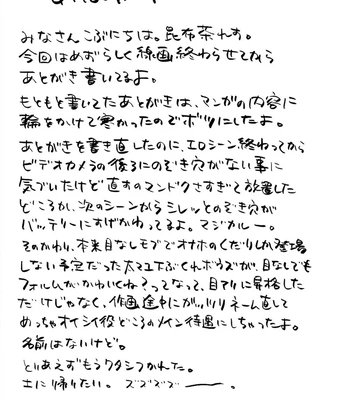 みなさんこぶにちは。昆布茶れす。
今回はめずらしく線画終わらせてから
あとがき書いてるよ。
もともと書いてたあとがきは、マンガの内容に
輪をかけて寒かったのでボツにしたよ。
あとがきを書き直したのに、エロシーン終わってから
ビデオカメラの後ろにのぞき穴がない事に
気づいたけど直すのマンドクさすぎて放置した
どころか、次のシーンからシレッとのぞき穴が
バッテリーにすげかわってるよ。マジカルー。
そのかわり、本来目なしモブでオナホのくだりしか登場
しない予定だった太マユ下ぶくれボウズが、目なしでも
フォルムがかわいくね？ってなって、目アリに昇格した
だけじゃなく、作画途中にガッツリネーム直して
めっちゃオイシイ役どころのメイン待遇にしちゃったよ。
名前はないけど。
とりあえずもうワタシつかれた。
土に帰りたい。ズブズブズブ――。